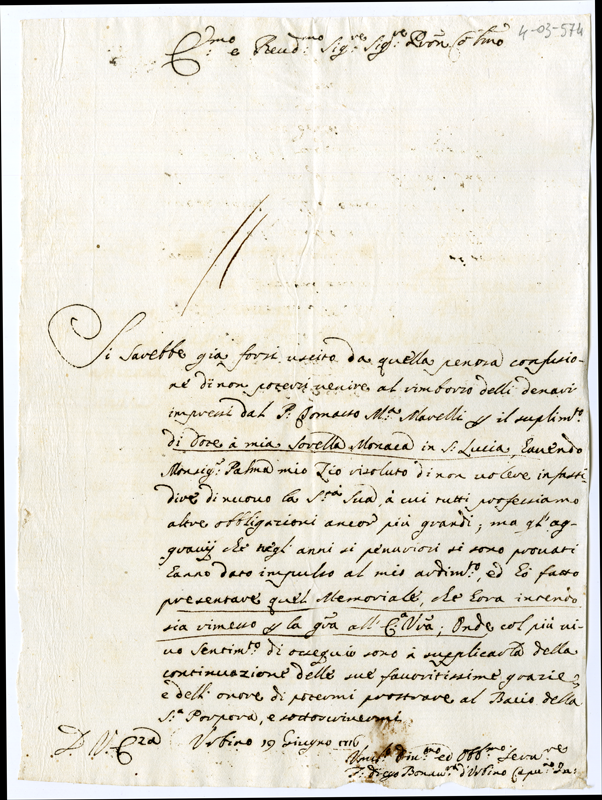 4-03-574
E.mo e Reud.mo Sig.re Sig.re Pron Col.mo
Si sarebbe gia forsi uscito da quella penosa confusio-
ne di non potersi venire al rimborso delli denari
impressi dal P. Tomasso M.a Marelli il suplim.to
di Dote à mia Sorella Monaca in S. Lucia, hauendo
Monsig.r Palma mio Zio risoluto di non uolere infasti
dire di nuouo la S.tà Sua, à cui tutti professiamo
altre obbligazioni ancor più grandi; ma gl'ag-
grauij che negl'anni si penuriosi si sono prouati
hanno dato impulso al mio ardim.to, ed hò fatto
presentare quel Memoriale, che hora intendo
sia rimesso la gra all' E.a Vra; Onde col più ui-
uo sentim.to di ossequio sono à supplicarla della
continuazione delle sue fauoritissime grazie,
e dell' onore di potermi prostrare al Bacio della
S.a Porpora, e sottoscriuermi
D. V. E.za Urbino 19 Giugno 1716
Umil.mo Diu.mo ed Obb.mo Seru.re
d'Urbino